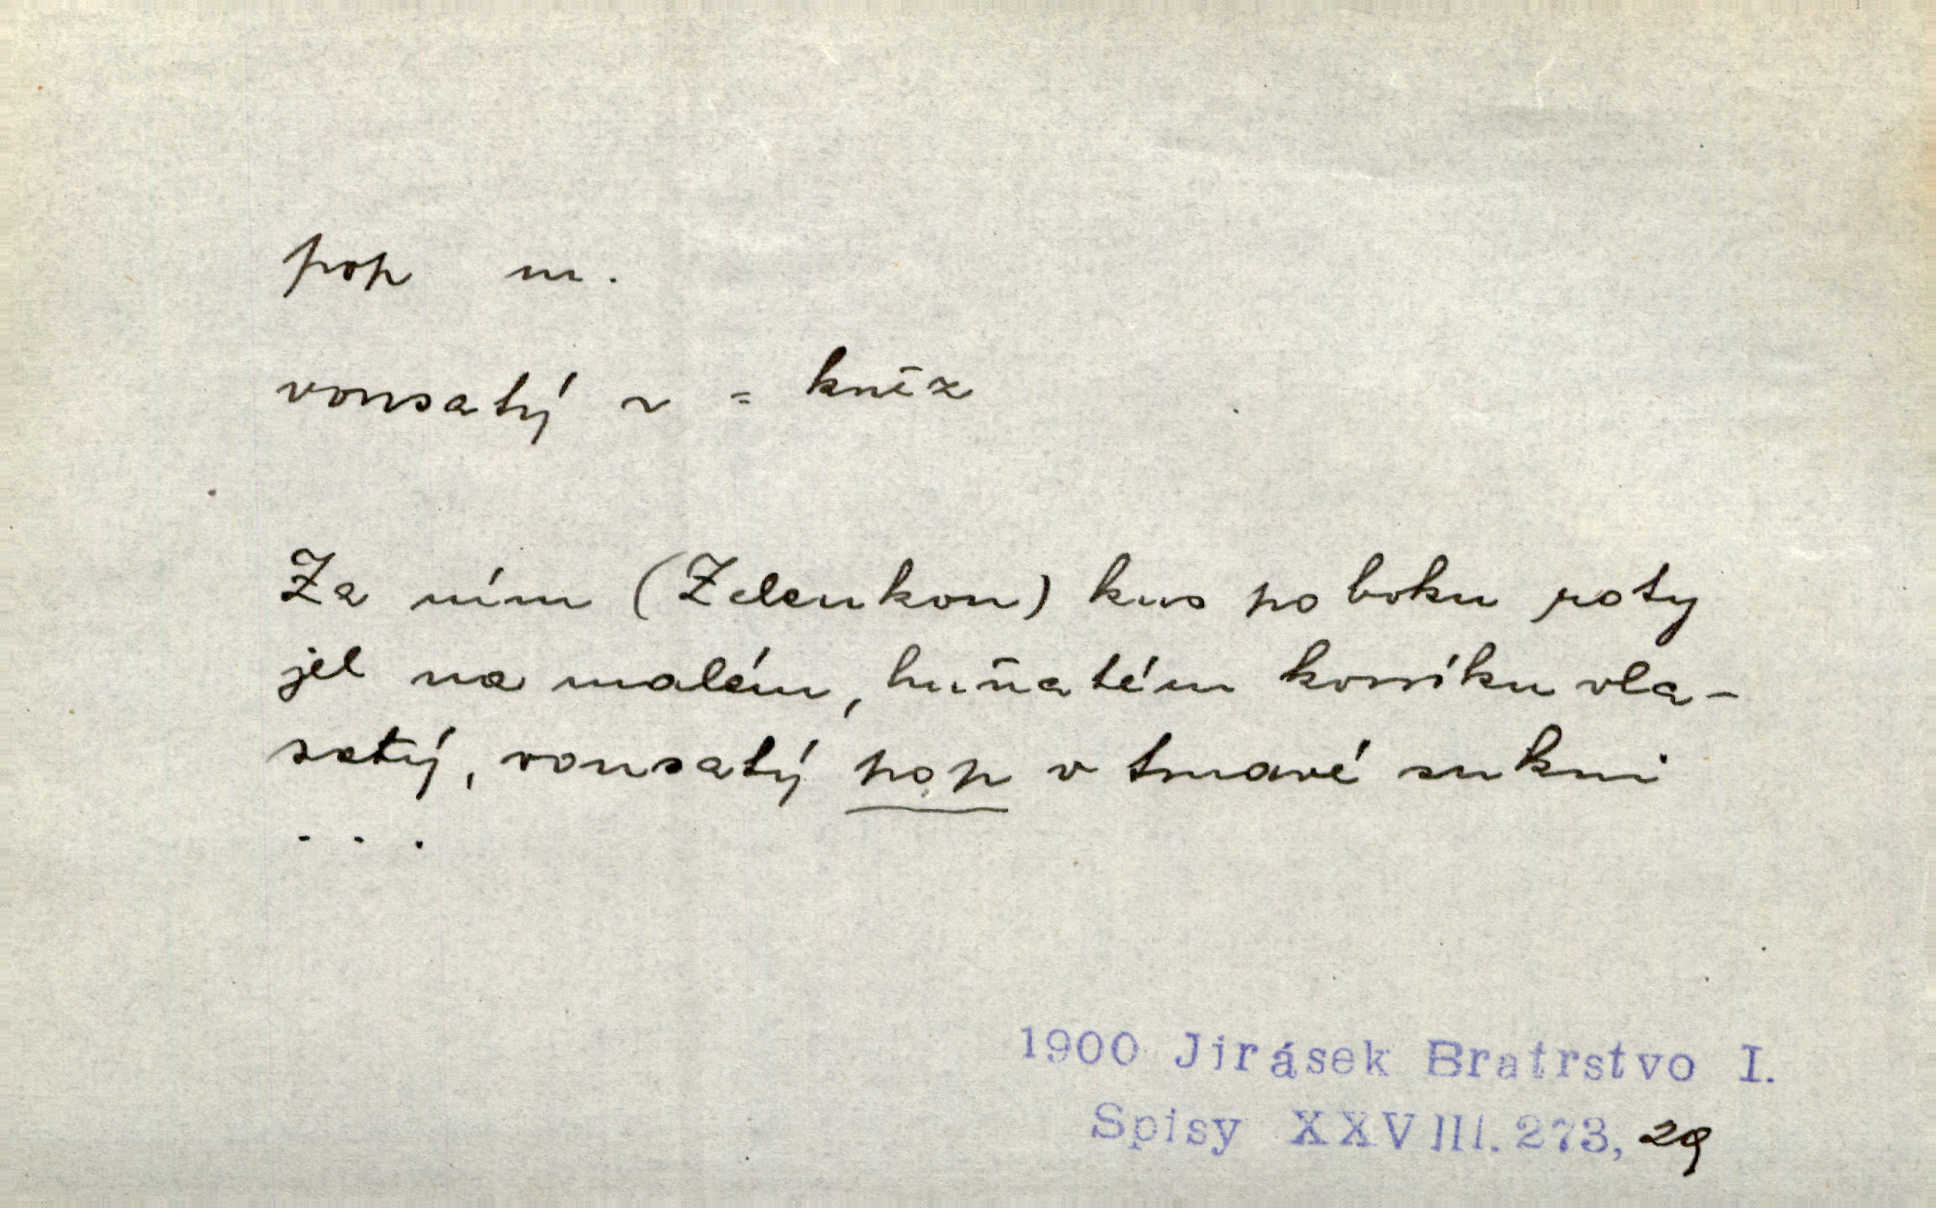 pop m.
vousatý ~ = kněz
Za ním (Zelenkou) kus po boku roty
jel na malém, huňatém koníku vla-
satý, vousatý pop v tmavé sukni
. . .
1900 Jirásek Bratrstvo I.
Spisy XXVIII. 273, 29